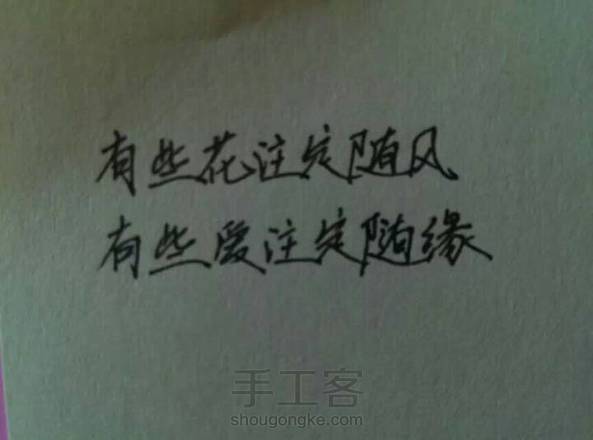 有些花注定随风
有些爱注定随缘
手工客
shougongke.com